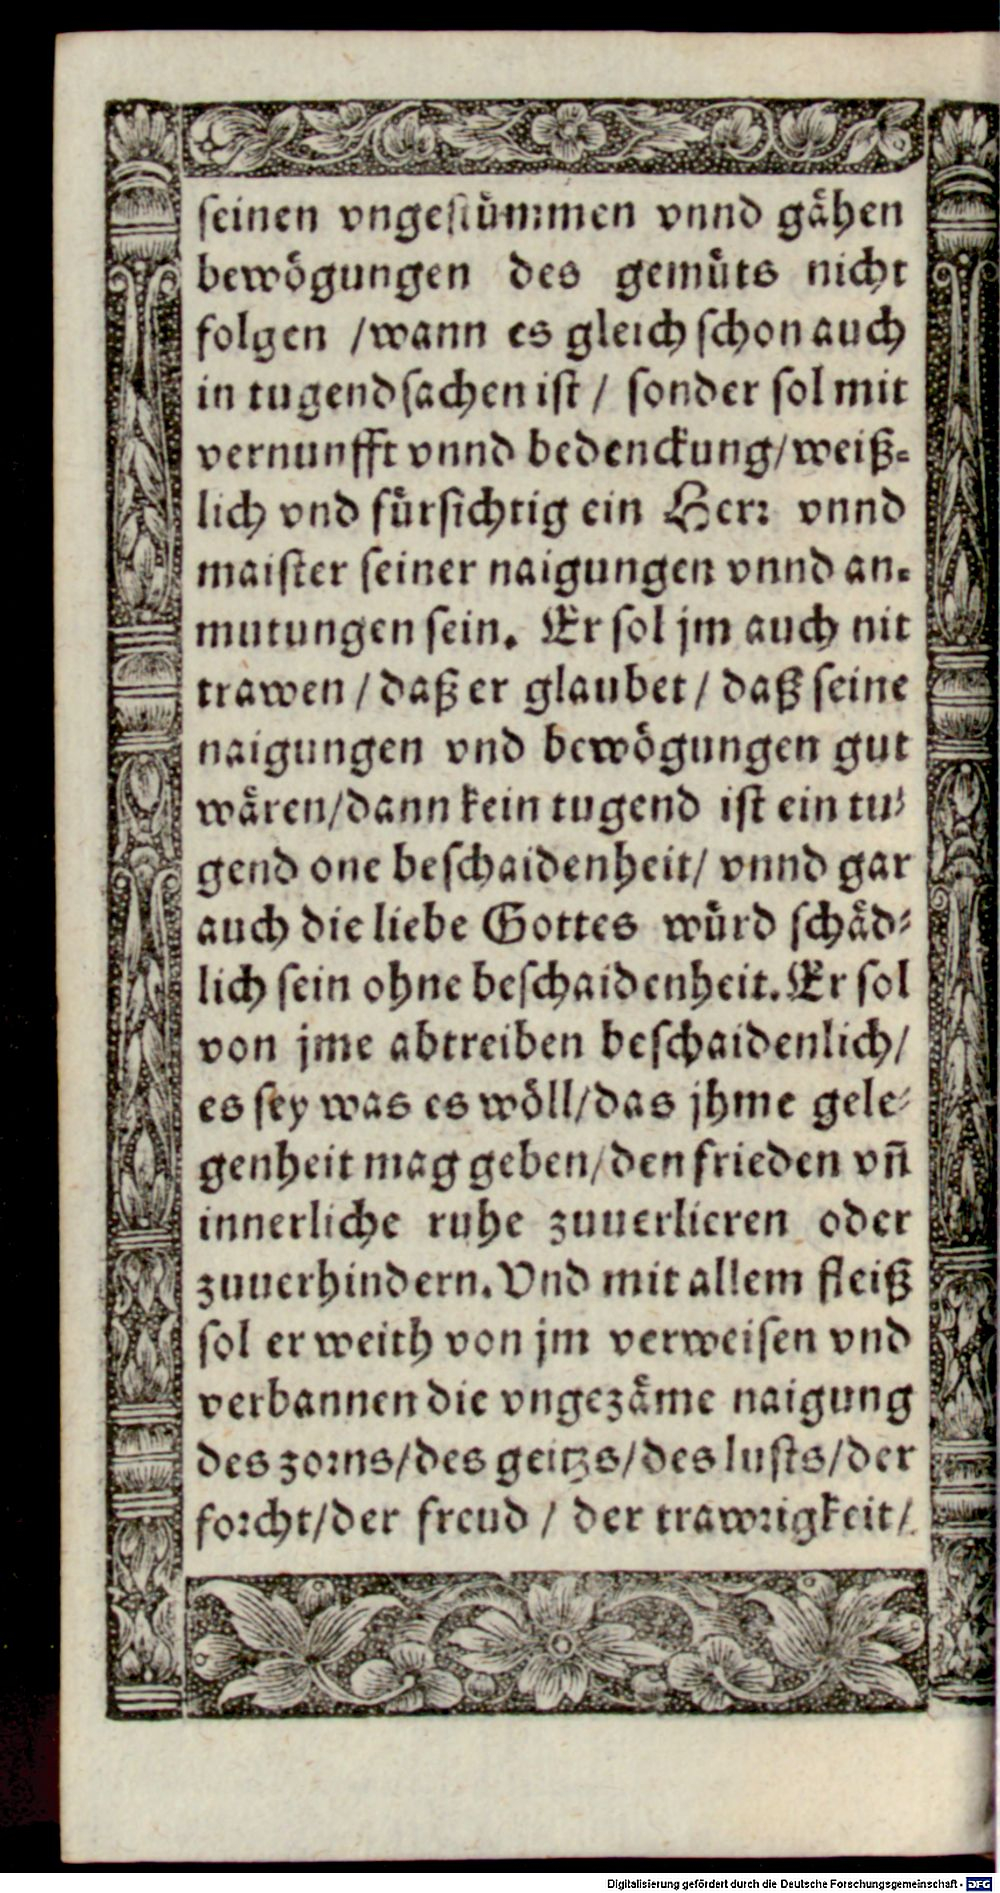 seinen vngestümmen vnnd gähen
bewögungen des gemüts nicht
folgen /wann es gleich schon auch
in tugendsachen ist / sonder sol mit
vernunfft vnnd bedenckung/weiß-
lich vnd fürsichtig ein Herr vnnd
maister seiner naigungen vnnd an-
mutungen sein. Er sol jm auch nit
trawen / daß er glaubet / daß seine
naigungen vnd bewögungen gut
wären/dann kein tugend ist ein tu-
gend one beschaidenheit/ vnnd gar
auch die liebe Gottes würd schäd-
lich sein ohne beschaidenheit. Er sol
von jme abtreiben beschaidenlich/
es sey was es wöll/das jhme gele-
genheit mag geben/den frieden vñ
innerliche ruhe zuuerlieren oder
zuuerhindern. Vnd mit allem fleiß
sol er weith von jm verweisen vnd
verbannen die vngezäme naigung
des zorns/des geitzs/des lusts/der
forcht/der freud / der trawrigkeit/
Digitalisierung gefördert durch die Deutsche Forschungsgemeinschaft - DFG